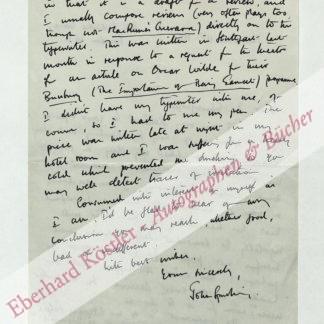 in that it is a draft for a review, and
I usually compose reviews (very often plays too
though not Machiavelli Guevara) directly on to the
typewriter. This was written in Stuttgart last
month in response to a request for the theatre
for an article on Oscar Wilde for their
Bunbury (The Importance of Being Earnest) programme.
I didn't have my typewriter with me, of
course, so I had to use my pen. The
piece was written late at night in my
hotel room and I was suffering for a
cold which prevented me
may well detect traces of
Consumed with interest in myself as
I am, I'd be glad to hear of any
conclusion you may reach, whether good,
bad or indifferent.
With best wishes,
Yours sincerely,
John
Eberhard Köstler Autographen & Bücher